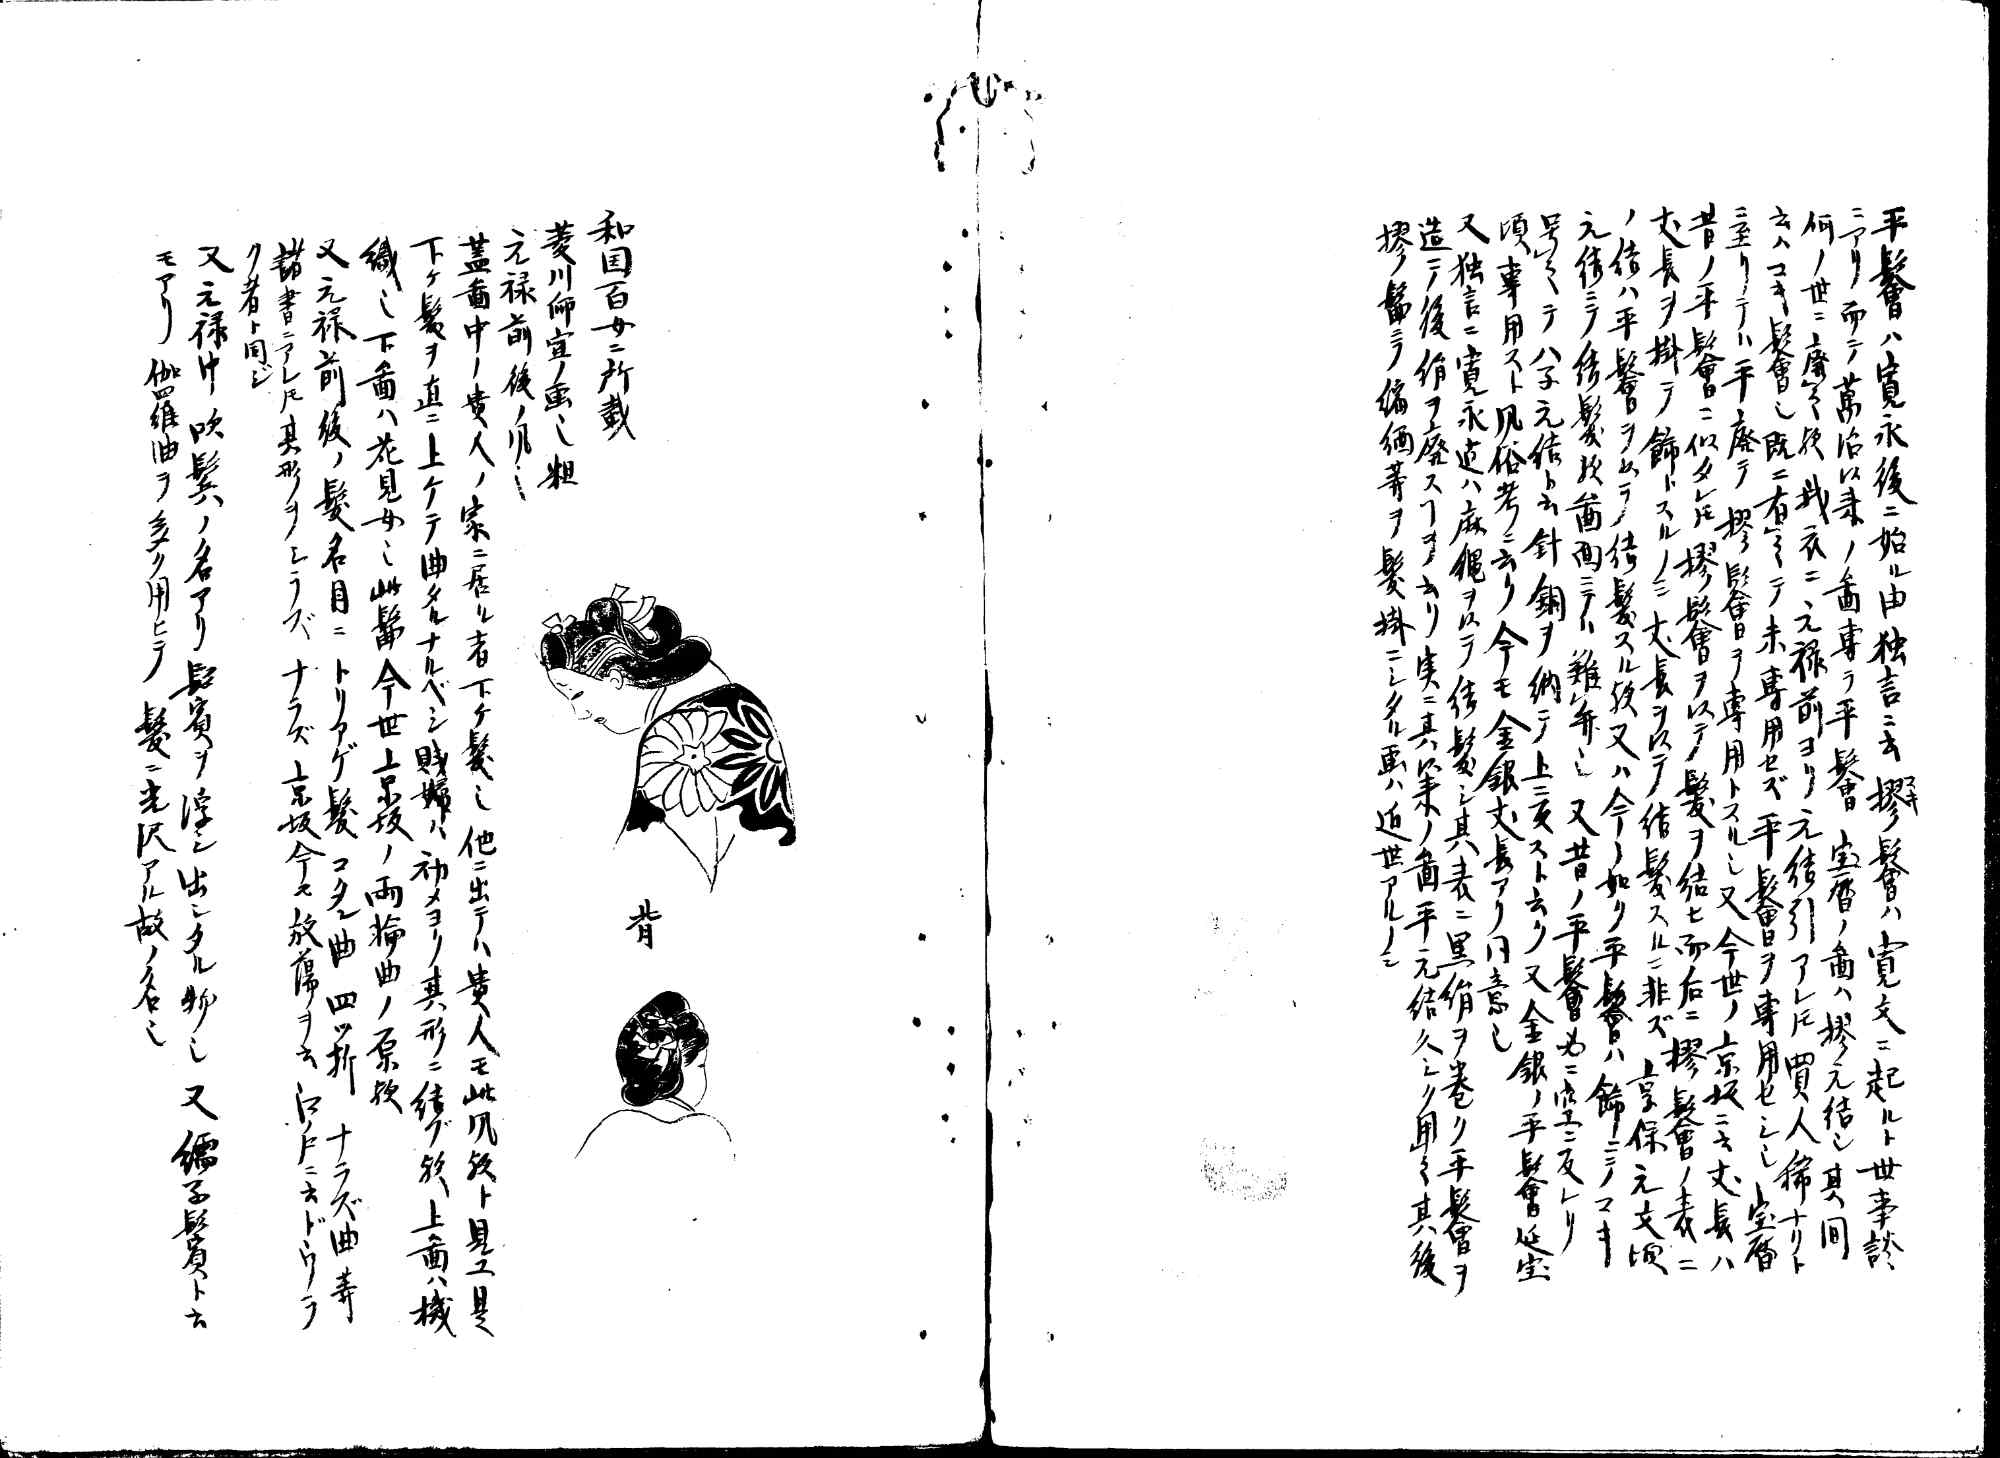 平髻ハ寛永後ニ始ル由独言ニ云摎髻ハ寛文ニ起ルト世事談
スキ
ニアリ而シテ萬治以来ノ畵専ラ平髻宝暦ノ畵ハ摎元結也其間
何ノ世ニ廃ス歟我衣ニ元禄前ヨリ元結引アレ𪜈買人稀ナリト
云ハコキ髻也既ニ有之テ未専用セズ平髻ヲ専用セシ也宝暦
ニ至リテハ平廃テ摎髻ヲ専用トスル也又今世ノ京坂ニ云丈長ハ
昔ノ平髻ニ似タレ𪜈摎髻ヲ以テ髪ヲ結ヒ而后ニ摎髻ノ表ニ
丈長ヲ掛テ飾トスルノミ丈長ヲ以テ結髪スルニ非ズ享保元文頃
ノ結ハ平髻ヲ以テ結髪スル歟又ハ今ノ如ク平髻ハ飾ニシテコキ
元結ニテ結髪歟畵面ニテハ難弁也又昔ノ平髻必ニ空ニ反レリ
号之テハ子元結ト云針銅ヲ納テ上ニ反スト云リ又金銀ノ平髻延宝
頃専用スト風俗考ニ云リ今モ金銀丈長アリ同意也
又独言ニ寛永迄ハ麻縄ヲ以テ結髪シ其表ニ黒絹ヲ巻ク平髻ヲ
造テ後絹ヲ廃スヿヲ云リ実ニ其以来ノ畵平元結久シク用之其後
摎髻ニテ縮緬等ヲ髪掛ニシタル画ハ近世アルノミ
和国百女ニ所載
菱川師宣ノ画也粗
元禄前後ノ風也
蓋畵中ノ貴人ノ家ニ居ル者下ケ髪也他ニ出テハ貴人モ此風歟ト見ユ是
下ケ髪ヲ直ニ上ケテ曲タルナルベシ賎婦ハ初メヨリ其形ニ結ブ歟上畵ハ機
織也下畵ハ花見女也此髷今世上京坂ノ両輪曲ノ原歟
又元禄前後ノ髪名目ニトリアゲ髪コタン曲四ツ折ナラズ曲等
諸書ニアレ𪜈其形ヲシラズナラズ京坂今モ放蕩ヲ云江戸ニ云ドウラ
ク者ト同ジ
又元禄中吹鬂ノ名アリ鬢ヲ浮シ出シタル物也又繻子鬢ト云
モアリ伽羅油ヲ多ク用ヒテ髪ニ光沢アル故ノ名也
背